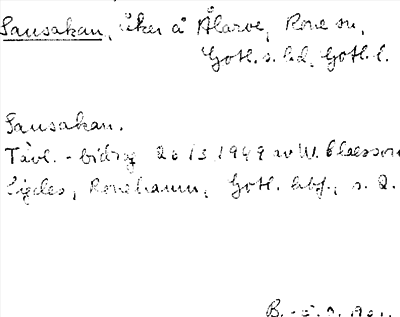 Sausakan, åker å Ålarve, Rone sn,
Gotl. s. hd, Gotl. l.
Sausakan.
Tävl.-bidrag 20/3 1949 av W. Claesson
Ronehamn, Gotl. s. 2.
B.